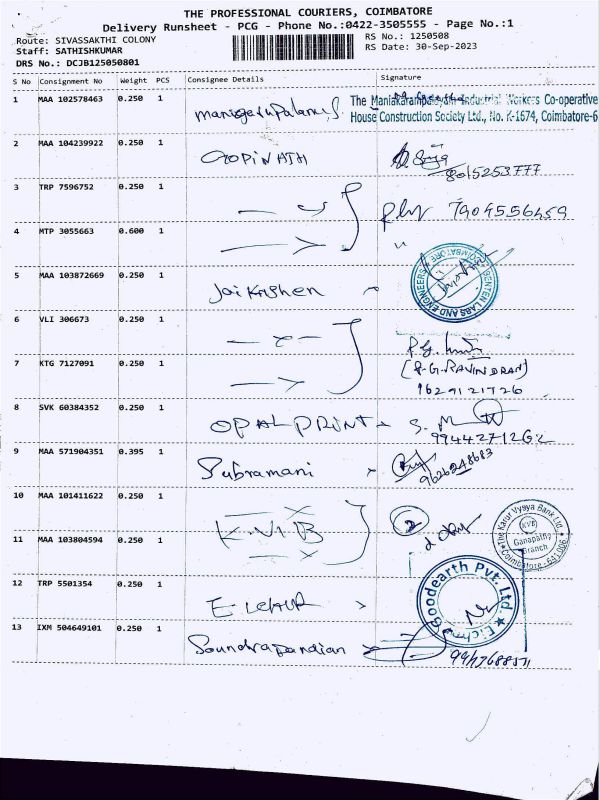 THE PROFESSIONAL COURIERS, COIMBATORE
Delivery Runsheet - PCG - Phone No.:0422-3505555 - Page No.:1
Route: SIVASSAKTHI COLONY
Staff: SATHISHKUMAR
DRS No.: DCJB125050801
RS No.: 1250508
RS Date: 30-Sep-2023
S No Consignment No Weight PCS Consignee Details Signature
1 MAA 102578463 0.250 1
The Maniakarampalayam Industrial Workers Co-operative
House Construction Society Ltd., No. K-1674, Coimbatore-6
2 MAA 104239922 0.250 1 GOPINATH
8015253777
3 TRP 7596752 0.250 1 7904556459
4 MTP 3055663 0.600 1
5 MAA 103872669 0.250 1 Jai Krishen
BENTEN LABS AND ENGINEERS COIMBATORE
6 VLI 306673 0.250 1
7 KTG 7127091 0.250 1
(R.G. RAVINDRAN)
1629121726
8 SVK 60384352 0.250 1 OPAL PRINT
9 MAA 571904351 0.395 1 Subramani 9626248683
10 MAA 101411622 0.250 1
K.V.B
The Karur Vysya Bank Ltd. KVB Ganapathy Branch Coimbatore - 641 006
11 MAA 103804594 0.250 1
12 TRP 5501354 0.250 1
Goodearth Pvt. Ltd.
13 IXM 504649101 0.250 1 Soundrapandian